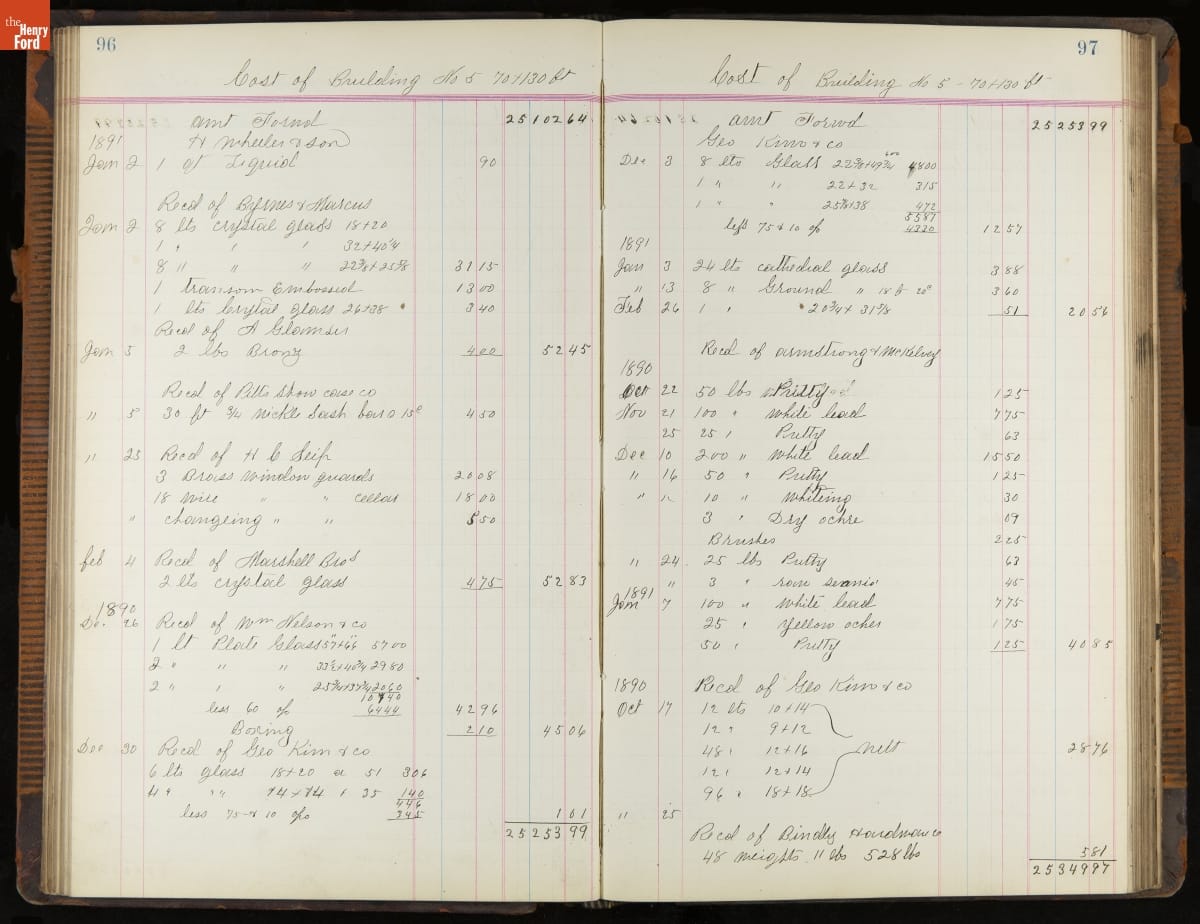 the Henry Ford
96
Cost of Building No 5 70+130 ft
amt Forwd 25102 64
1891 H Wheeler & Son
Jan 2 1 qt Liquid 90
Recd of Byrnes & Marcus
Jan 2 8 lts crystal glass 18+20
1 " " " 32+40 1/4
8 " " " 22 3/8+25 5/8 31 15
1 transom Embossed 13 00
1 lts Crystal glass 26+38 3 40
Recd of A Glamser
Jan 5 2 lbs Bronz 4 00 52 45
Recd of Pitts Show case co
" 5 30 ft 3/4 nickle Sash bar @ 15c 4 50
" 23 Recd of H C Seip
3 Brass window guards 20 08
18 wire " " cellar 18 00
" changeing " " 5 50
feb 4 Recd of Marshell Bros
2 lts crystal glass 4 75 52 83
1890
De. 26 Recd of Wm Nelson & co
1 lt Plate Glass 57 00
2 " " " 29 80
2 " " " 20 60
107 40
less 60 ofo 64 44 42 96
Boxing 2 10 45 06
Dec 30 Recd of Geo Kim & co
6 lts glass 18+20 a 51 3 06
4 " " 14+14 " 35 1 40
4 46
less 75 & 10 ofo 3 45 1 01
25253 99
97
Cost of Building No 5 - 70+130 ft
amt Forwd 25253 99
Geo Kim & co
Dec 3 8 lts Glass 22 3/8+49 3/4 600 48 00
1 " " 22+32 3 15
1 " " 25 7/8+38 4 72
55 87
less 75 & 10 of 43 30 12 57
1891
Jan 3 24 lts cathedral glass 3 88
" 13 8 " Ground " 18 3 60
Feb 26 1 " " 20 3/4+31 5/8 51 20 56
Recd of armstrong & McKelvey
1890
Oct 22 50 lbs Putty 1 25
Nov 21 100 " white lead 7 75
25 25 " Putty 63
Dec 10 200 " White lead 15 50
" 16 50 " Putty 1 25
" " 10 " whiteing 30
3 " Dry ochre 09
Brushes 2 25
" 24 25 lbs Putty 63
" 3 " raw 45
1891
Jan 7 100 " white lead 7 75
25 " yellow ocher 1 75
50 " Putty 1 25 40 85
1890 Recd of Geo Kim & co
Oct 17 12 lts 10+14
12 " 9+12
48 " 12+16 nett 28 76
12 " 12+14
96 " 18+18
" 25
Recd of Bindley Hardware
48 weights 11 lbs 528 lbs 5 81
25349 97